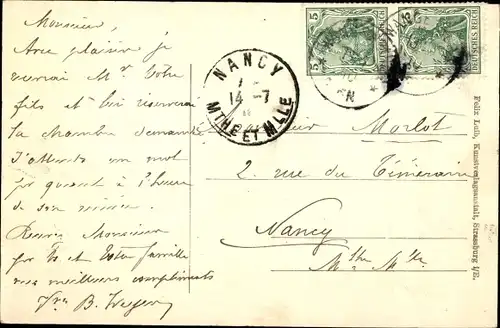 Monsieur,
Avec plaisir je
recevrai Mr Votre
fils et lui réserverai
la chambre demandée
J'attends un mot
quant à l'heure
de son arrivée.
Recevez Monsieur
et Votre famille
mes meilleurs compliments
B.
NANCY
14 -7
MTHE ET MLLE
5
DEUTSCHES REICH
DEUTSCHES REICH
Monsieur Marlot
2 rue du Téméraire
Nancy
Mthe Mlle
Felix Luib, Kunstverlagsanstalt, Strassburg i/E.